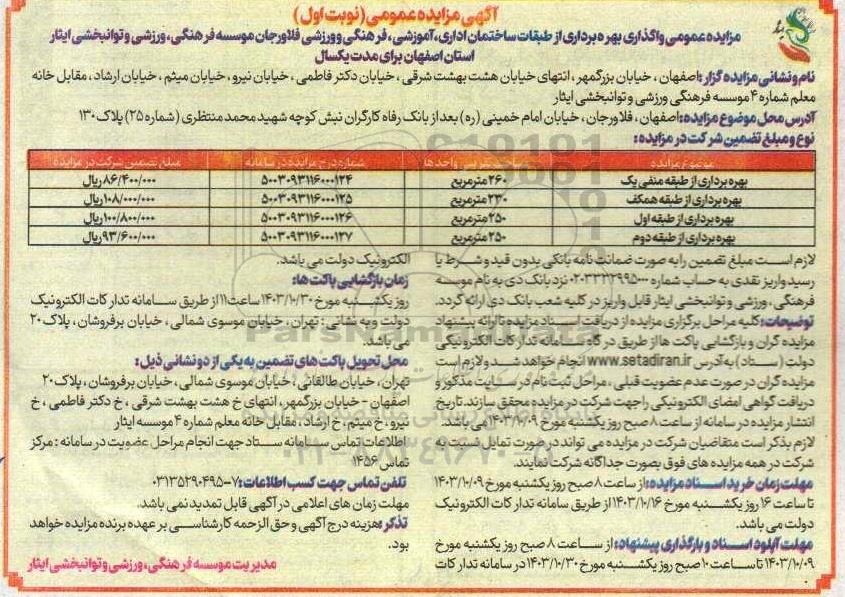 آگهی مزایده عمومی (نوبت اول)
مزایده عمومی واگذاری بهره برداری از طبقات ساختمان اداری، آموزشی، فرهنگی و ورزشی فلاورجان موسسه فرهنگی، ورزشی و توانبخشی ایثار
استان اصفهان برای مدت یکسال
نام و نشانی مزایده گزار: اصفهان، خیابان بزرگمهر، انتهای خیابان هشت بهشت شرقی، خیابان دکتر فاطمی، خیابان نیرو، خیابان میثم، خیابان ارشاد، مقابل خانه
معلم شماره ۴ موسسه فرهنگی ورزشی و توانبخشی ایثار
آدرس محل موضوع مزایده: اصفهان، فلاورجان، خیابان امام خمینی (ره) بعد از بانک رفاه کارگران نبش کوچه شهید محمد منتظری (شماره ۲۵) پلاک ۱۳۰
نوع و مبلغ تضمین شرکت در مزایده:
موضوع مزایده مساحت تقریبی واحدها شماره درج مزایده در سامانه مبلغ تضمین شرکت در مزایده
بهره برداری از طبقه منفی یک ۲۶۰ مترمربع ۵۰۰۳۰۹۳۱۱۶۰۰۰۱۲۴ ۸۶/۴۰۰/۰۰۰ ریال
بهره برداری از طبقه همکف ۲۳۰ مترمربع ۵۰۰۳۰۹۳۱۱۶۰۰۰۱۲۵ ۱۰۸/۰۰۰/۰۰۰ ریال
بهره برداری از طبقه اول ۲۵۰ مترمربع ۵۰۰۳۰۹۳۱۱۶۰۰۰۱۲۶ ۱۰۰/۸۰۰/۰۰۰ ریال
بهره برداری از طبقه دوم ۲۵۰ مترمربع ۵۰۰۳۰۹۳۱۱۶۰۰۰۱۲۷ ۹۳/۶۰۰/۰۰۰ ریال
لازم است مبلغ تضمین را به صورت ضمانت نامه بانکی بدون قید و شرط یا
رسید واریز نقدی به حساب شماره نزد بانک دی به نام موسسه
فرهنگی، ورزشی و توانبخشی ایثار قابل واریز در کلیه شعب بانک دی ارائه گردد.
توضیحات: کلیه مراحل برگزاری مزایده از دریافت اسناد مزایده تا ارائه پیشنهاد
مزایده گران و بازگشایی پاکت ها از طریق درگاه سامانه تدارکات الکترونیکی
دولت (ستاد) به آدرس www.setadiran.ir انجام خواهد شد و لازم است
مزایده گران در صورت عدم عضویت قبلی، مراحل ثبت نام در سایت مذکور و
دریافت گواهی امضای الکترونیکی را جهت شرکت در مزایده محقق سازند. تاریخ
انتشار مزایده در سامانه از ساعت ۸ صبح روز یکشنبه مورخ ۱۴۰۳/۱۰/۰۹ می باشد.
لازم بذکر است متقاضیان شرکت در مزایده می تواند در صورت تمایل نسبت به
شرکت در همه مزایده های فوق بصورت جداگانه شرکت نمایند.
مهلت زمان خرید اسناد مزایده: از ساعت ۸ صبح روز یکشنبه مورخ ۱۴۰۳/۱۰/۰۹
تا ساعت ۱۶ روز یکشنبه مورخ ۱۴۰۳/۱۰/۱۶ از طریق سامانه تدارکات الکترونیک
دولت می باشد.
مهلت آپلود اسناد و بارگذاری پیشنهاد: از ساعت ۸ صبح روز یکشنبه مورخ
۱۴۰۳/۱۰/۰۹ تا ساعت ۱۰ صبح روز یکشنبه مورخ ۱۴۰۳/۱۰/۳۰ در سامانه تدارکات
الکترونیک دولت می باشد.
زمان بازگشایی پاکت ها:
روز یکشنبه مورخ ۱۴۰۳/۱۰/۳۰ ساعت ۱۱ از طریق سامانه تدارکات الکترونیک
دولت و به نشانی: تهران، خیابان موسوی شمالی، خیابان برفروشان، پلاک ۲۰
می باشد.
محل تحویل پاکت های تضمین به یکی از دو نشانی ذیل:
تهران، خیابان طالقانی، خیابان موسوی شمالی، خیابان برفروشان، پلاک ۲۰
اصفهان - خیابان بزرگمهر، انتهای خ هشت بهشت شرقی، خ دکتر فاطمی، خ
نیرو، خ میثم، خ ارشاد، مقابل خانه معلم شماره ۴ موسسه ایثار
اطلاعات تماس سامانه ستاد جهت انجام مراحل عضویت در سامانه: مرکز
تماس ۱۴۵۶
تلفن تماس جهت کسب اطلاعات: ۷-۰۳۱۳۵۲۹۰۴۹۵
مهلت زمان های اعلامی در آگهی قابل تمدید نمی باشد.
تذکر: هزینه درج آگهی و حق الزحمه کارشناسی بر عهده برنده مزایده خواهد
بود.
مدیریت موسسه فرهنگی، ورزشی و توانبخشی ایثار